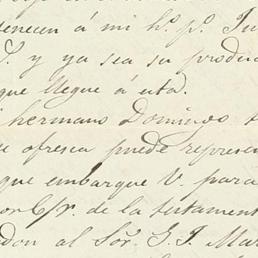 enecen á mi hº. pº. Ju
S. y ya sea su produc
que llegue á esta.
hermano Domingo t
e ofresca puede represen
que embarque V. para
or C/r. de la testament
don al Sor. G. J. Mar